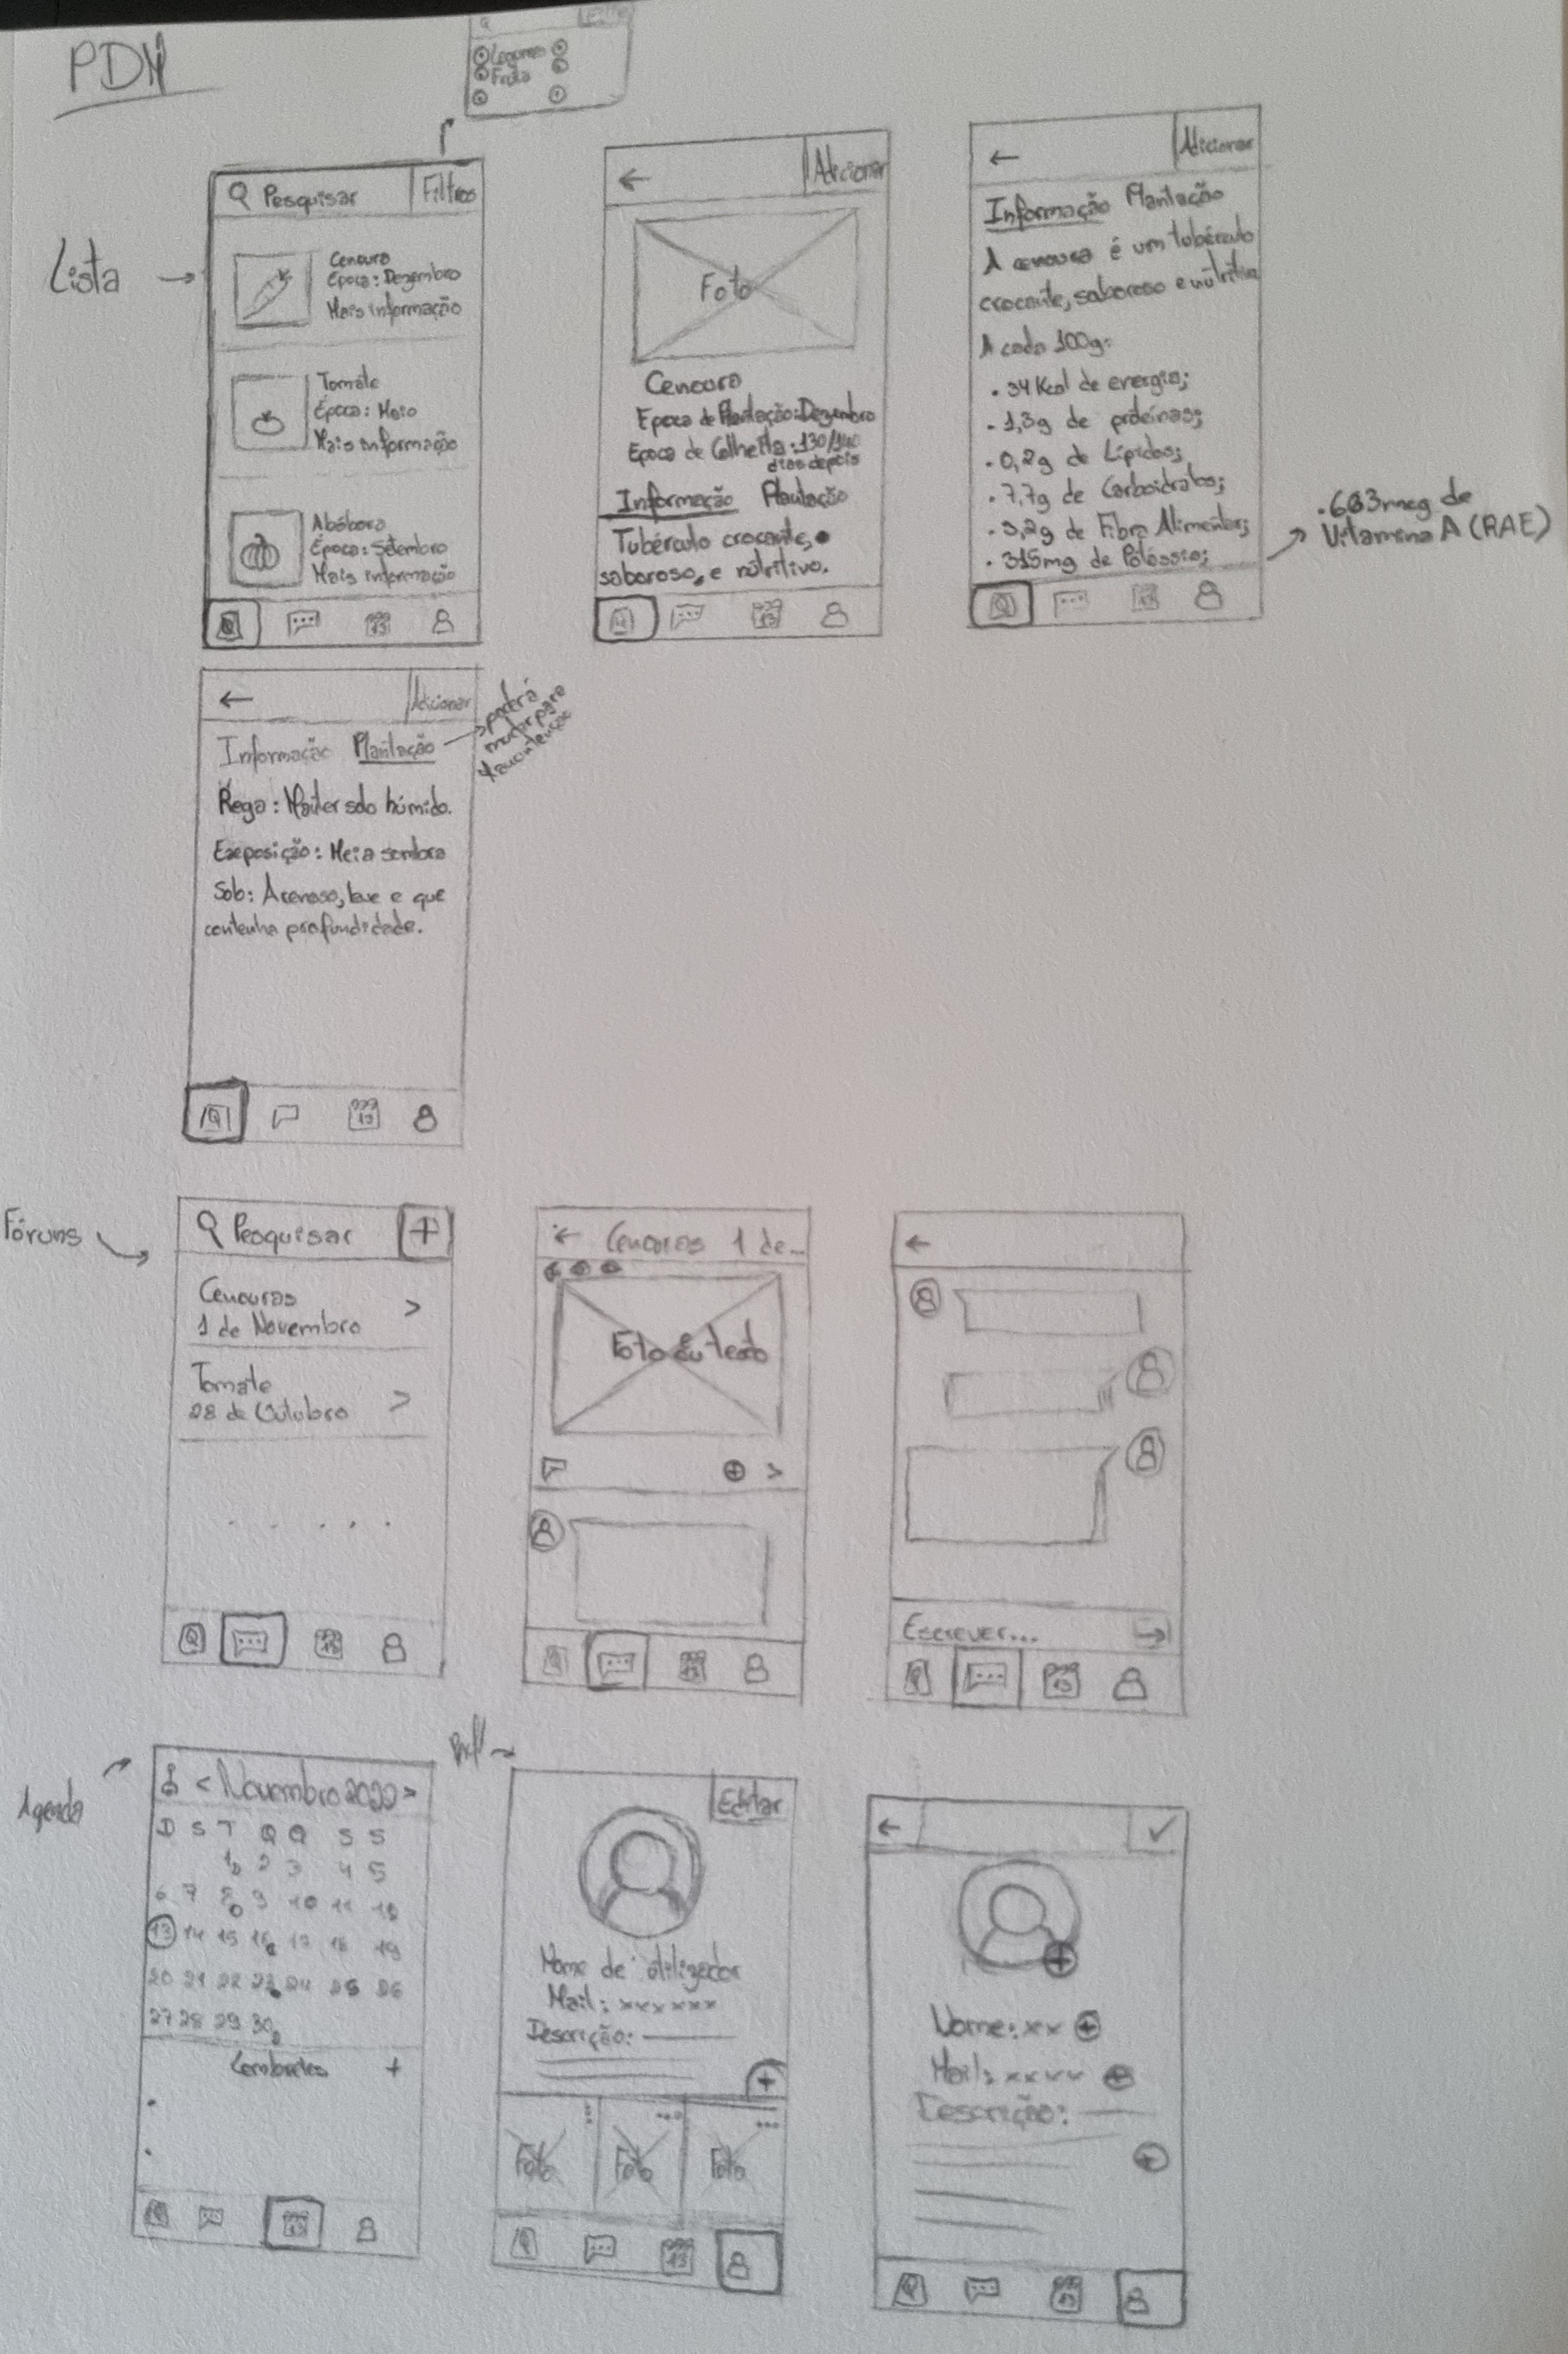 PDM
Legumes
Fruta
Lista
Pesquisar
Filtros
Cenoura
Época: Dezembro
Mais informação
Tomate
Época: Maio
Mais informação
Abóbora
Época: Setembro
Mais informação
Adicionar
Foto
Cenoura
Época de Plantação: Dezembro
Época de Colheita: 130/140
dias depois
Informação Plantação
Tubérculo crocante,
saboroso, e nutritivo.
Adicionar
Informação Plantação
A cenoura é um tubérculo
crocante, saboroso e nutritivo
A cada 100g:
. 34 Kcal de energia;
. 1,3g de proteínas;
. 0,2g de Lípidos;
. 7,7g de Carboidratos;
. 3,2g de Fibra Alimentar;
. 315mg de Potássio;
. 663mcg de
Vitamina A (RAE)
Adicionar
Informação Plantação
poderá
mudar para
Manutenção
Rega: Manter solo húmido.
Exposição: Meia sombra
Solo: Arenoso, leve e que
contenha profundidade.
Fóruns
Pesquisar +
Cenouras >
1 de Novembro
Tomate >
28 de Outubro
. . . . .
Cenouras 1 de...
Foto ou texto
>
Escrever...
Agenda
< Novembro 2022 >
D S T Q Q S S
1 2 3 4 5
6 7 8 9 10 11 12
13 14 15 16 17 18 19
20 21 22 23 24 25 26
27 28 29 30
Lembretes +
Perfil
Editar
Nome de utilizador
Mail: xxxxxx
Descrição:
+
Foto Foto Foto
Nome: xx +
Mail: xxxx +
Descrição: